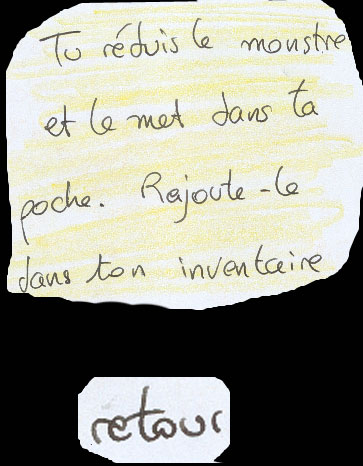 Tu réduis le monstre
et le met dans ta
poche. Rajoute-le
dans ton inventaire
retour